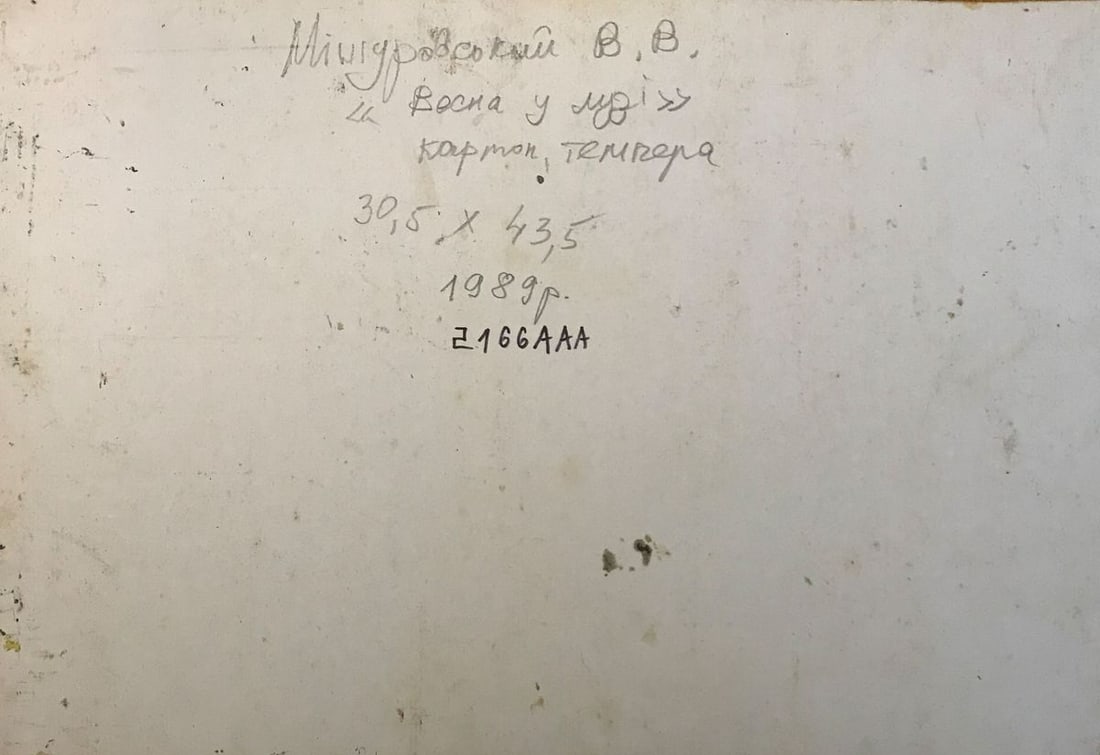 Мішуровський В. В.
« Весна у
картон, темпера
30,5 х 43,5
1989р.
2166AAA